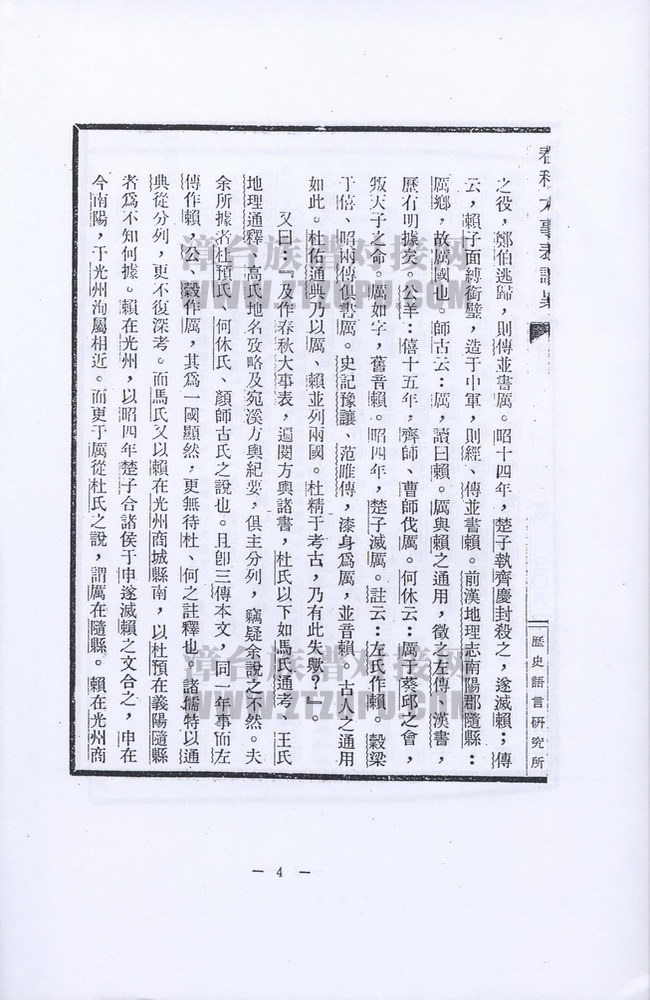 春秋大事表譔異
歷史語言研究所
之役，鄭伯逃歸，則傳並書厲。昭十四年，楚子執齊慶封殺之，遂滅賴；傳
云，賴子面縛銜璧，造于中軍，則經、傳並書賴。前漢地理志南陽郡隨縣：
厲鄉，故厲國也。師古云：厲，讀曰賴。厲與賴之通用，徵之左傳、漢書，
歷有明據矣。公羊：僖十五年，齊師、曹師伐厲。何休云：厲于葵丘之會，
叛天子之命。厲如字，舊音賴。昭四年，楚子滅厲。註云：左氏作賴。穀梁
于僖、昭兩傳俱書厲。史記豫讓、范睢傳，漆身爲厲，並音賴。古人之通用
如此。杜佑通典乃以厲、賴並列兩國。杜精于考古，乃有此失歟？」。
又曰：『及作春秋大事表，遍閱方輿諸書，杜氏以下如馬氏通考、王氏
地理通釋、高氏地名攷略及宛溪方輿紀要，俱主分列，竊疑余說之不然。夫
余所據者杜預氏、何休氏、顏師古氏之說也。且卽三傳本文，同一年事而左
傳作賴，公、穀作厲，其爲一國顯然，更無待杜、何之註釋也。諸儒特以通
典從分列，更不復深考。而馬氏又以賴在光州商城縣南，以杜預在義陽隨縣
者爲不知何據。賴在光州，以昭四年楚子合諸侯于申遂滅賴之文合之，申在
今南陽，于光州洵屬相近。而更于厲從杜氏之說，謂厲在隨縣。賴在光州商
— 4 —
漳台族譜对接网
WWW.ZTZUPU.COM
漳台族譜对接网
WWW.ZTZUPU.COM